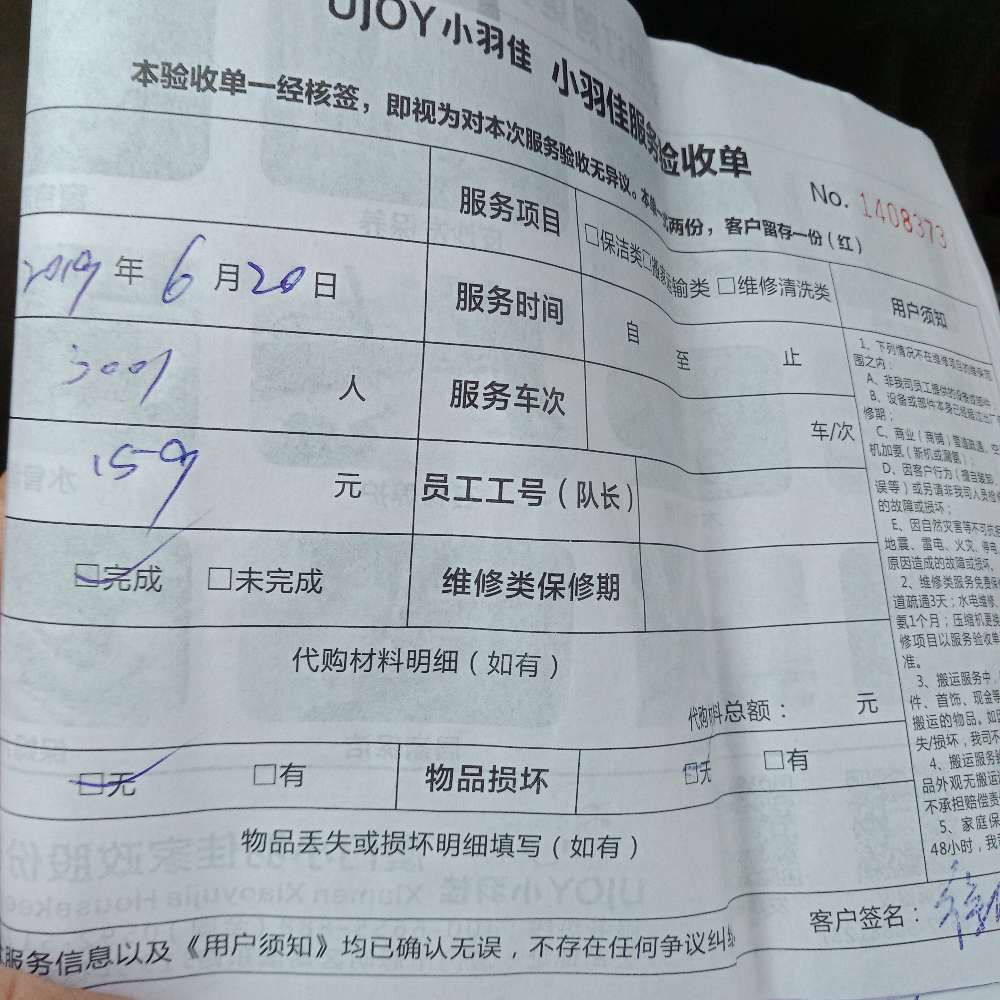 UJOY小羽佳 小羽佳服务验收单
No. 1408373
本验收单一经核签，即视为对本次服务验收无异议。本单一式两份，客户留存一份（红）
服务项目 □保洁类□搬家运输类 □维修清洗类
2019年6月20日 服务时间 自 至 止
人 服务车次 车/次
元 员工工号（队长）
□完成 □未完成 维修类保修期
代购材料明细（如有）
代购材料总额： 元
□无 □有 物品损坏 □无 □有
物品丢失或损坏明细填写（如有）
服务信息以及《用户须知》均已确认无误，不存在任何争议纠
客户签名：
用户须知
1、下列情况不在维修项目的维保范
围之内：
A、非我司员工提供的设备或部件
B、设备或部件本身已经超过出厂
修期；
C、商业（商铺）管道疏通、空
机加氨（新机或漏氨）；
D、因客户行为（擅自破卸、
误等）或另请非我司人员维修
的故障或损坏；
E、因自然灾害等不可抗
地震、雷电、火灾、停电
原因造成的故障或损坏。
2、维修类服务免费保
道疏通3天；水电维修
氨1个月；压缩机更换
修项目以服务验收单
准。
3、搬运服务中，
件、首饰、现金等
搬运的物品。如因
失/损坏，我司不
4、搬运服务
品外观无搬运
不承担赔偿责
5、家庭保
48小时，我